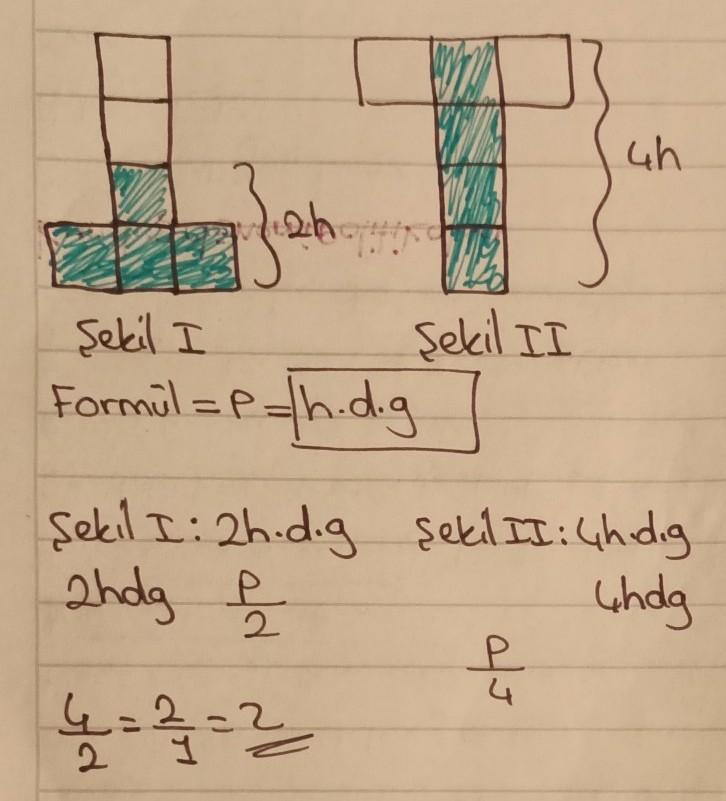 4h
2h
Şekil I
Şekil II
Formül = P = h.d.g
Şekil I : 2h.d.g
Şekil II : 4h.d.g
2hdg P/2
4hdg
P/4
4/2 = 2/1 = 2